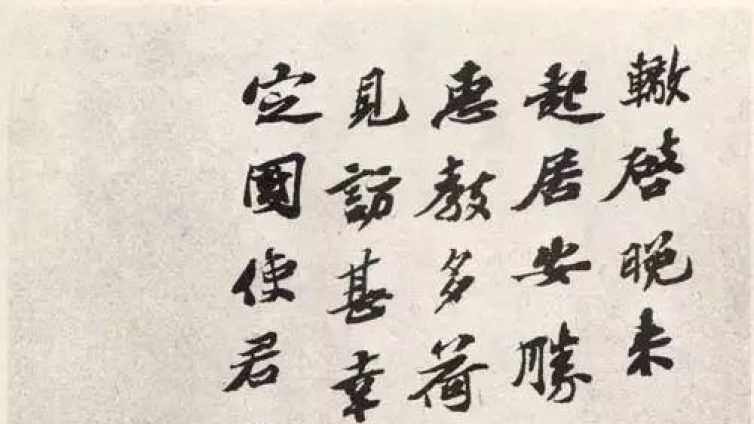 轍啓晚來
起居安勝
惠教多荷
見訪甚幸
定國使君